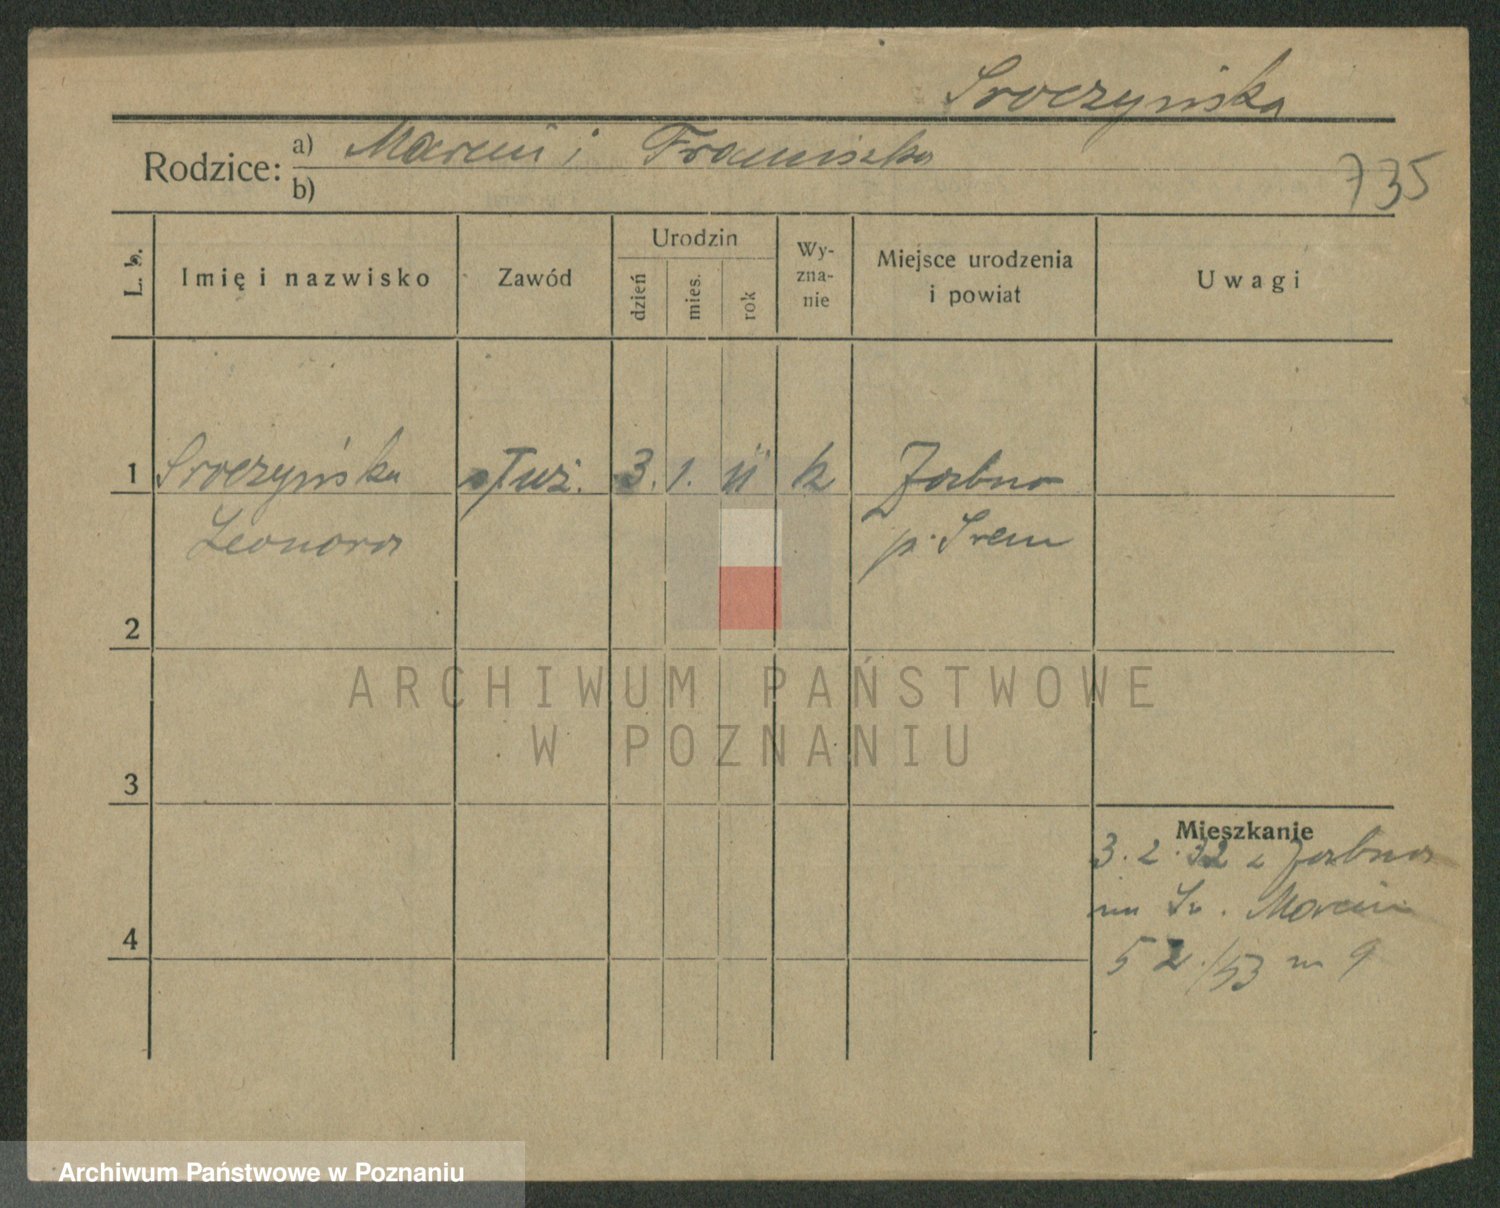 Sroczyńska
Rodzice: a) Marcin i Franciszka
b)
735
L. b.
Imię i nazwisko
Zawód
Urodzin
dzień
mies.
rok
Wy-
zna-
nie
Miejsce urodzenia
i powiat
Uwagi
1 Sroczyńska służ. 3. 1. 11 k Żabno
Leonora p. Śrem
2
3
4
Mieszkanie
3.2.32 z Żabna
na Św. Marcin
52/53 m 9
ARCHIWUM PAŃSTWOWE
W POZNANIU
Archiwum Państwowe w Poznaniu